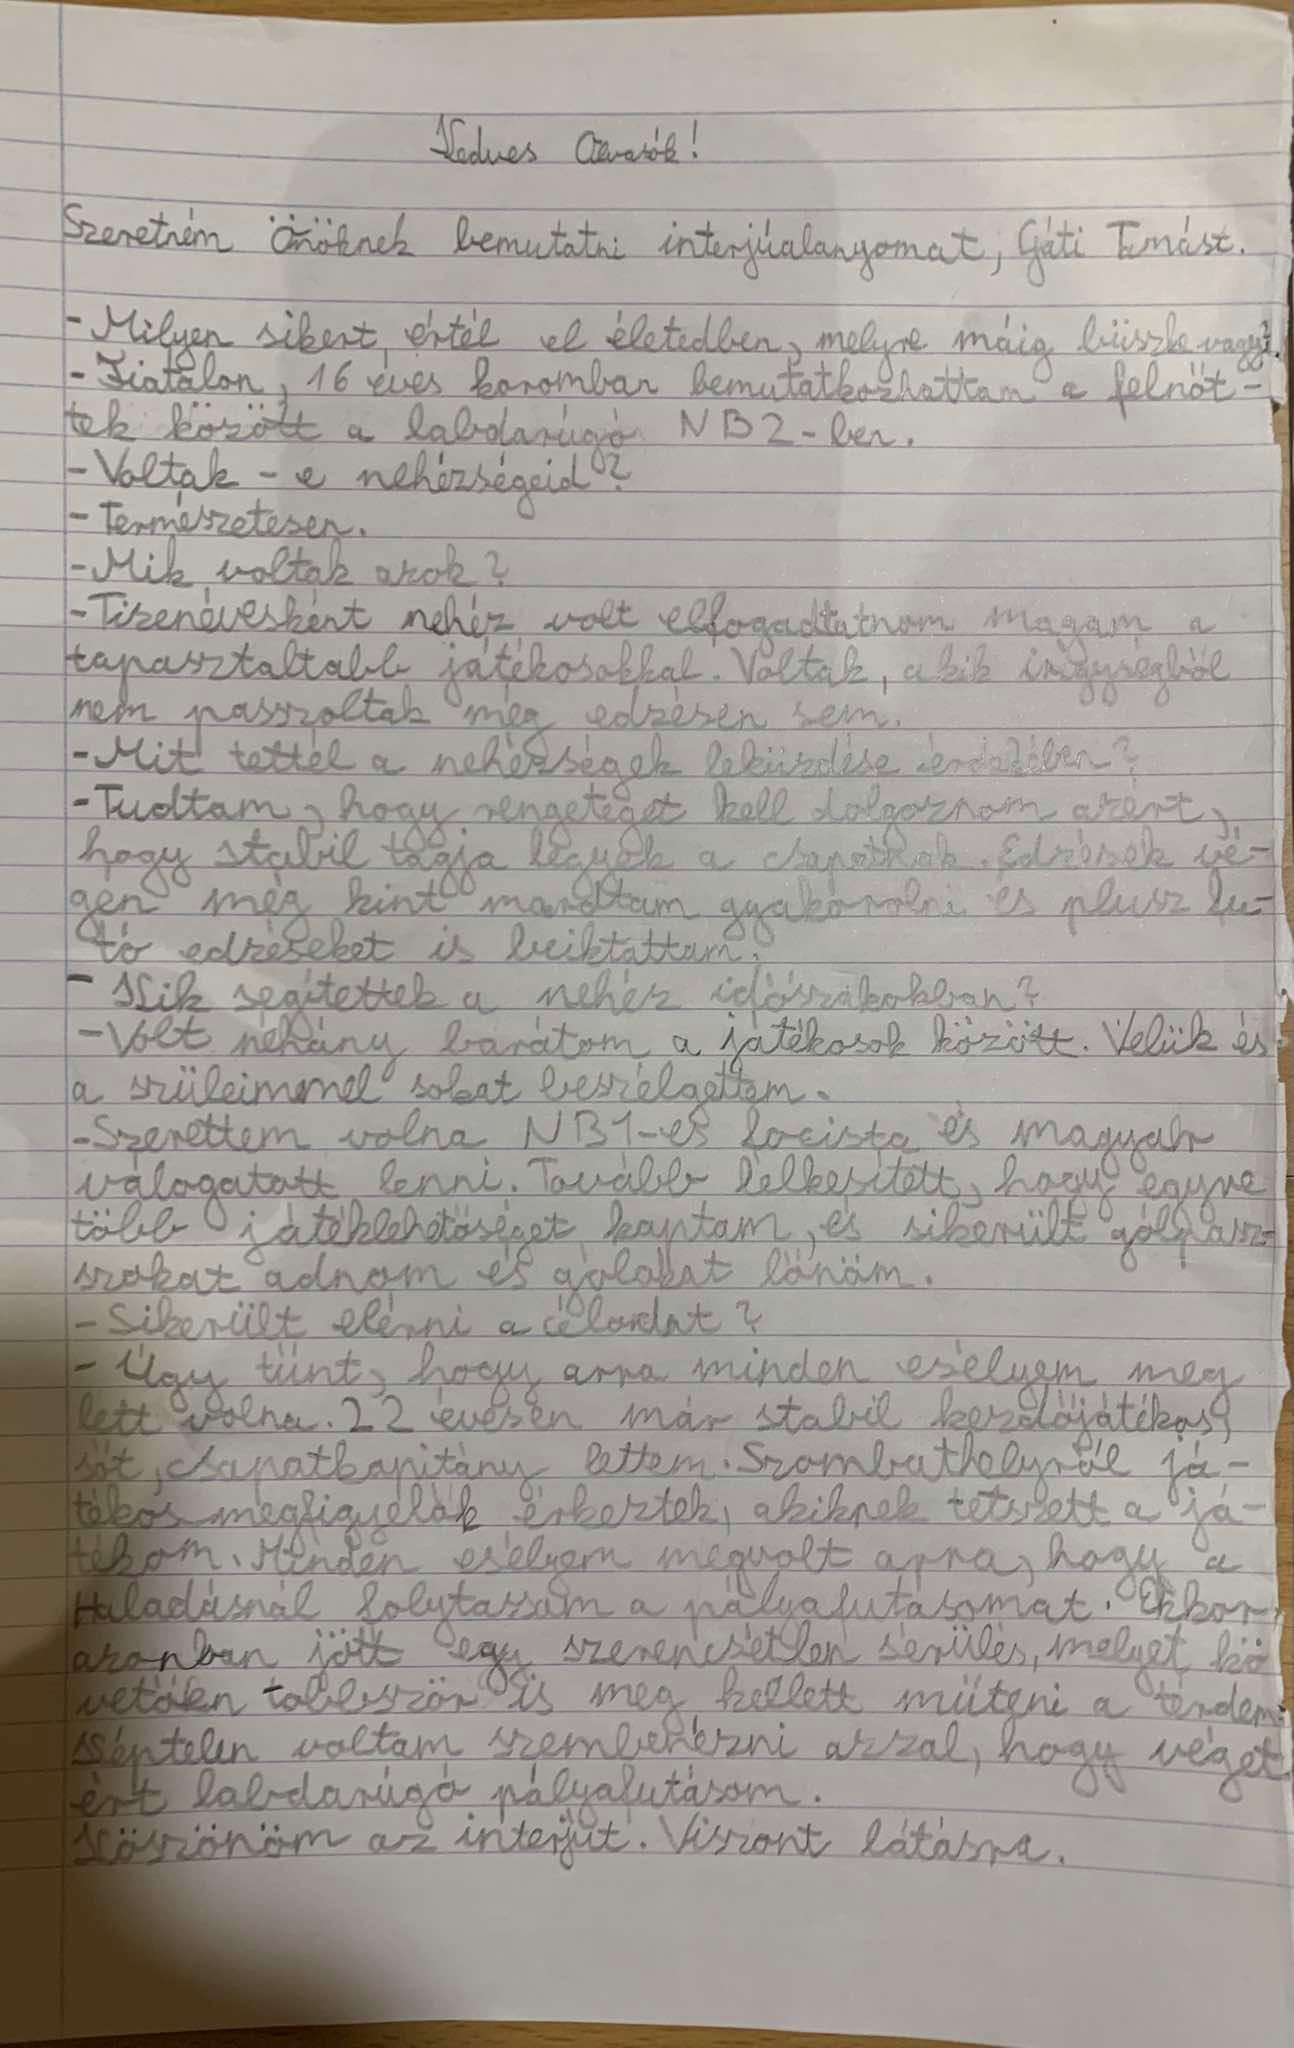 Kedves Olvasók!
Szeretném Önöknek bemutatni interjúalanyomat, Gáti Tamást.
- Milyen sikert értél el életedben, melyre máig büszke vagy?
- Fiatalon, 16 éves koromban bemutatkozhattam a felnőt-
tek között a labdarúgó NB2-ben.
- Voltak - e nehézségeid?
- Természetesen.
- Mik voltak azok?
- Tizenévesként nehéz volt elfogadtatnom magam a
tapasztaltabb játékosokkal. Voltak, akik irigységből
nem passzoltak még edzésen sem.
- Mit tettél a nehézségek leküzdése érdekében?
- Tudtam, hogy rengeteget kell dolgoznom azért,
hogy stabil tagja legyek a csapatnak. Edzések vé-
gén még kint maradtam gyakorolni és plusz fu-
tó edzéseket is beiktattam.
- Kik segítettek a nehéz időszakokban?
- Volt néhány barátom a játékosok között. Velük és
a szüleimmel sokat beszélgettem.
- Szerettem volna NB1-es focista és magyar
válogatott lenni. Tovább lelkesített, hogy egyre
több játéklehetőséget kaptam, és sikerült gólpasz-
szokat adnom és gólokat lőnöm.
- Sikerült elérni a célodat?
- Úgy tűnt, hogy arra minden esélyem meg
lett volna. 22 évesen már stabil kezdőjátékos,
sőt, csapatkapitány lettem. Szombathelyről já-
tékos megfigyelők érkeztek, akiknek tetszett a já-
tékom. Minden esélyem megvolt arra, hogy a
Haladásnál folytassam a pályafutásomat. Ekkor
azonban jött egy szerencsétlen sérülés, melyet kö
vetően többször is meg kellett műteni a térdem.
Képtelen voltam szembenézni azzal, hogy véget
ért labdarúgó pályafutásom.
Köszönöm az interjút. Viszont látásra.